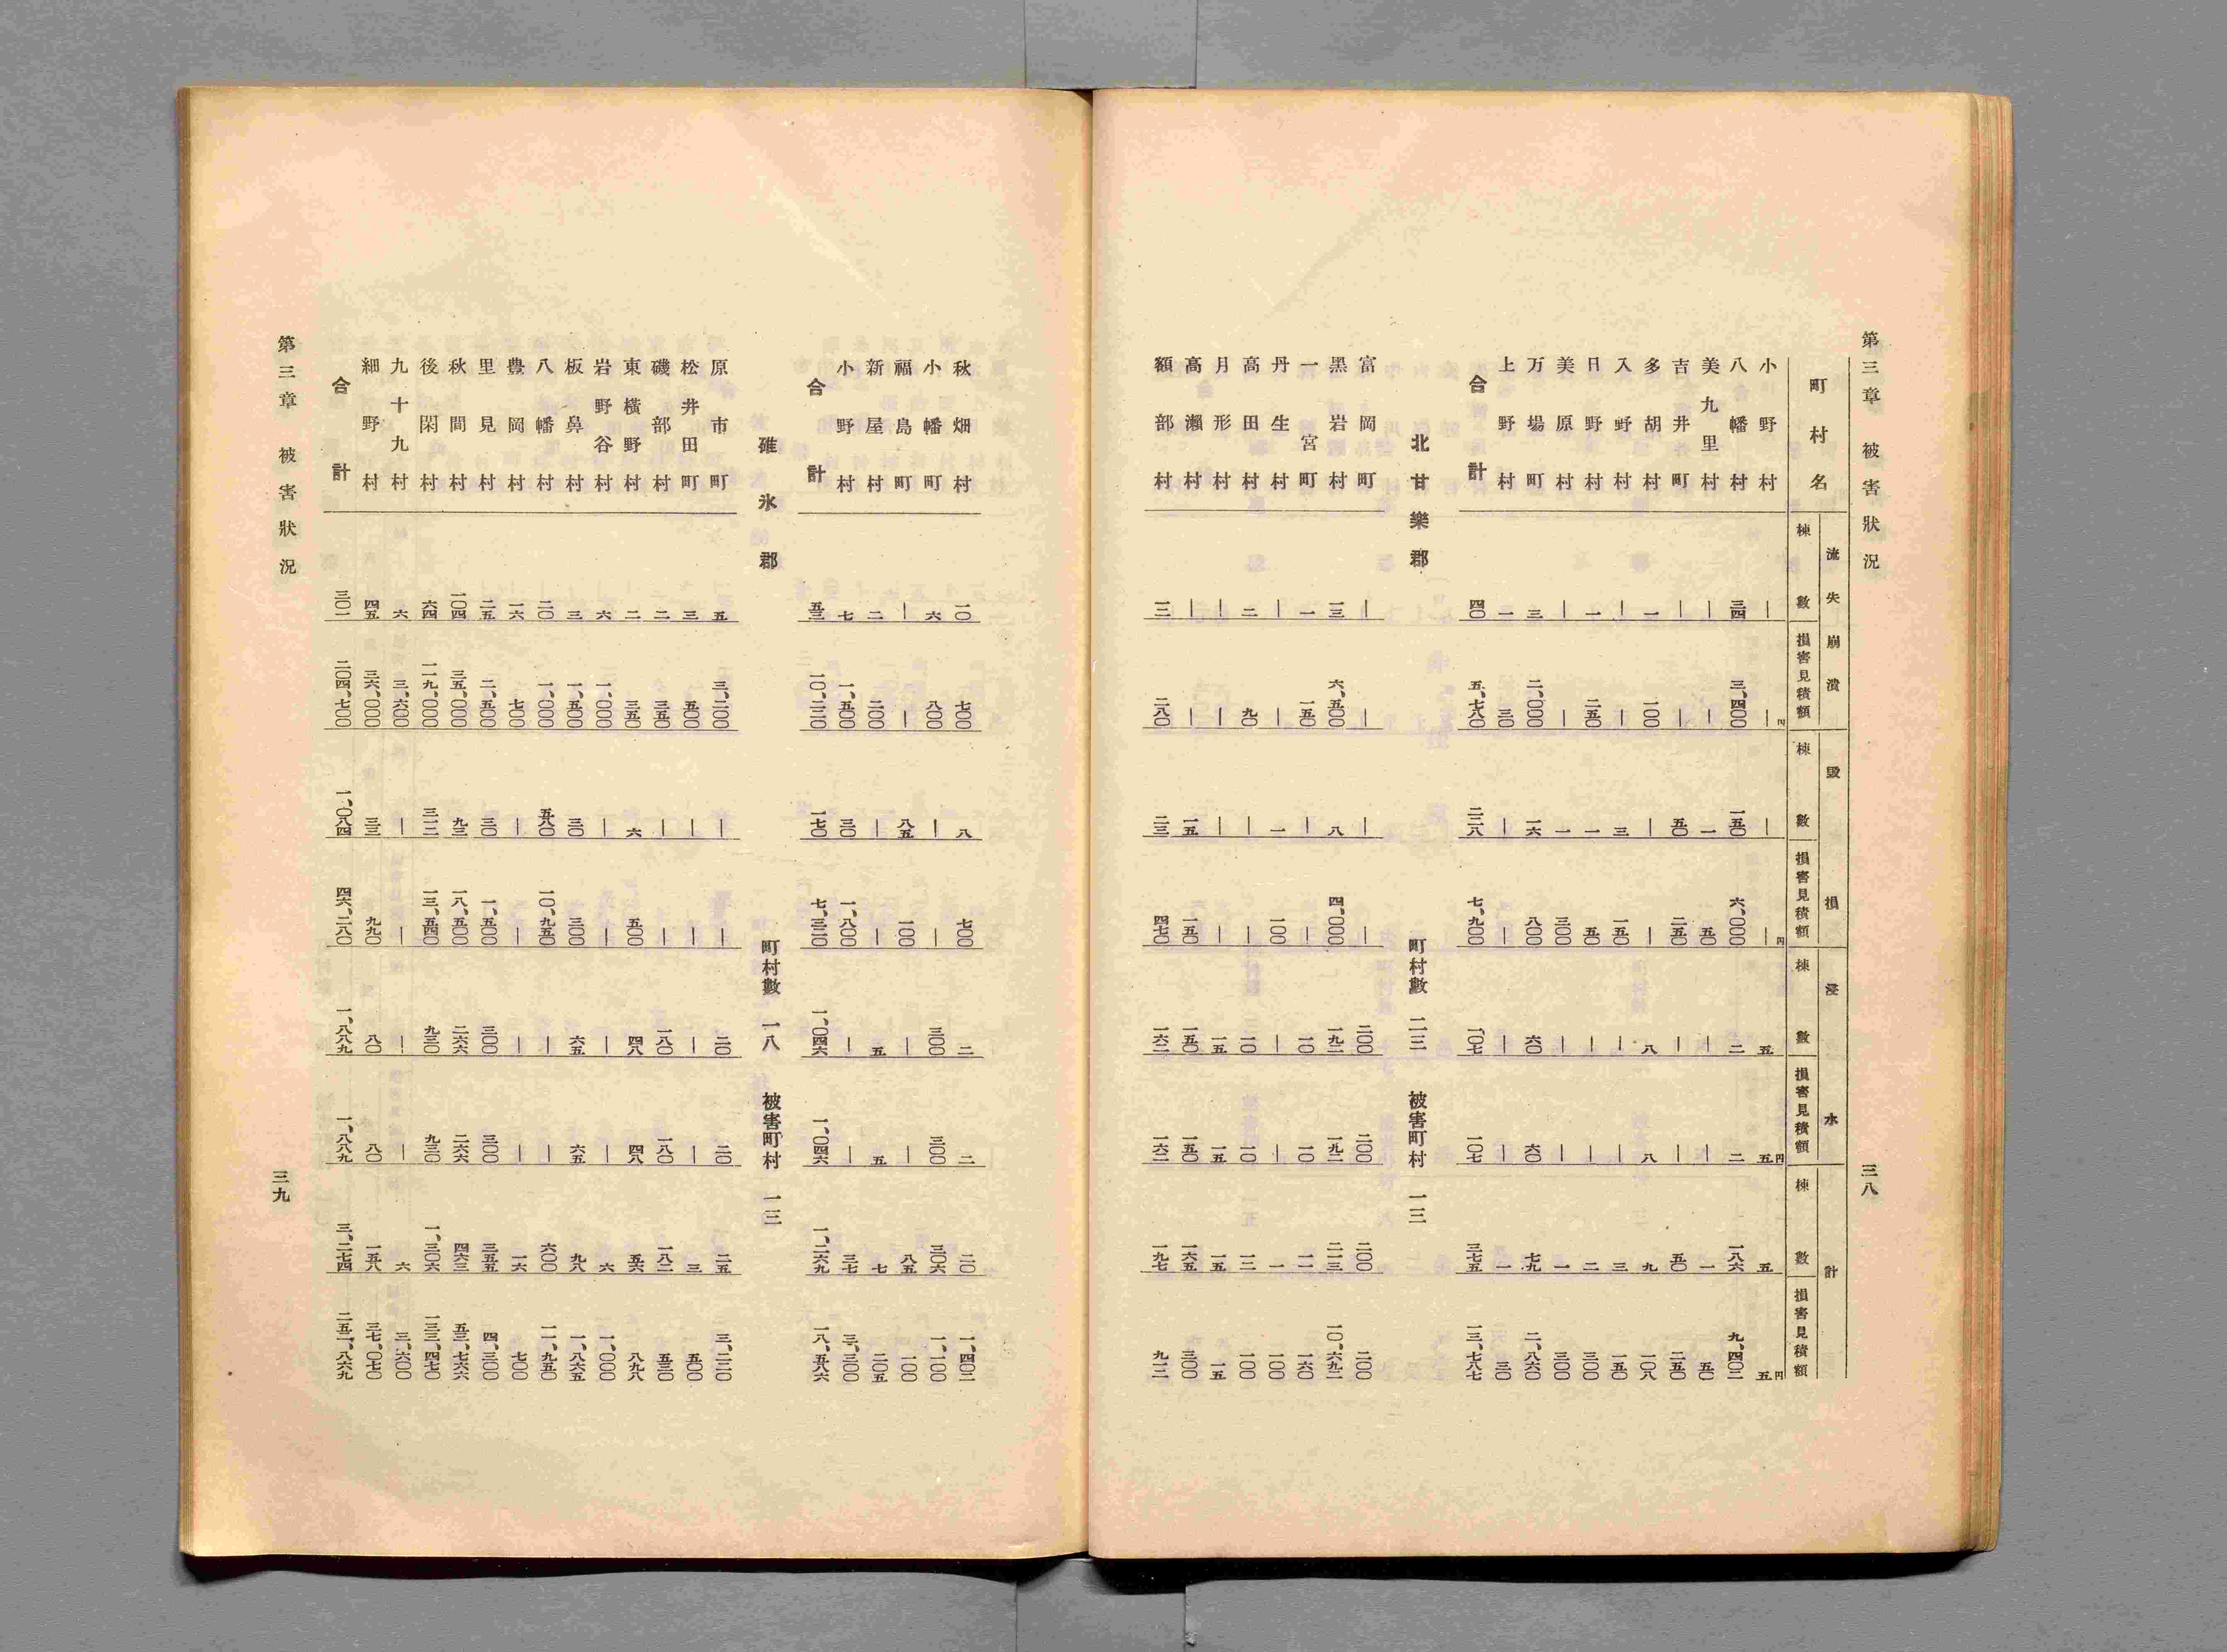 第三章 被害狀況 三八
町村名 流失崩潰 棟數 損害見積額 毀損 棟數 損害見積額 浸水 棟數 損害見積額 計 棟數 損害見積額
小野村 — —円 — —円 五 五円 五 五円
八幡村 三四 三、四〇〇 一五〇 六、〇〇〇 二 二 一八六 九、四〇二
美九里村 — — 一 五〇 — — 一 五〇
吉井町 — — 五〇 二五〇 — — 五〇 二五〇
多胡村 一 一〇〇 — — 八 八 九 一〇八
入野村 — — 三 一五〇 — — 三 一五〇
日野村 一 二五〇 一 五〇 — — 二 三〇〇
美原村 — — 一 三〇〇 — — 一 三〇〇
万場町 三 二、〇〇〇 一六 八〇〇 六〇 六〇 七九 二、八六〇
上野村 一 三〇 — — — — 一 三〇
合計 四〇 五、七八〇 二二八 七、九〇〇 一〇七 一〇七 三七五 一三、七八七
北甘樂郡 町村數 二三 被害町村 一三
富岡町 — — — — 二〇〇 二〇〇 二〇〇 二〇〇
黑岩村 一三 六、五〇〇 八 四、〇〇〇 一九二 一九二 二一三 一〇、六九二
一宮町 一 一五〇 — — 一〇 一〇 一一 一六〇
丹生村 — — 一 一〇〇 — — 一 一〇〇
高田村 二 九〇 — — 一〇 一〇 一二 一〇〇
月形村 — — — — 一五 一五 一五 一五
高瀨村 — — 一五 一五〇 一五〇 一五〇 一六五 三〇〇
額部村 一二 二八〇 二三 四七〇 一六二 一六二 一九七 九一二
秋畑村 一〇 七〇〇 八 七〇〇 二 二 二〇 一、四〇二
小幡町 六 八〇〇 — — 三〇〇 三〇〇 三〇六 一、一〇〇
福島町 — — 八五 一〇〇 — — 八五 一〇〇
新屋村 二 二〇〇 — — 五 五 七 二〇五
小野村 七 一、五〇〇 三〇 一、八〇〇 — — 三七 三、三〇〇
合計 五三 一〇、二二〇 一七〇 七、三二〇 一、〇四六 一、〇四六 一、二六九 一八、五八六
碓氷郡 町村數 一八 被害町村 一三
原市町 五 三、二〇〇 — — 二〇 二〇 二五 三、二二〇
松井田町 三 五〇〇 — — — — 三 五〇〇
磯部村 二 三五〇 — — 一八〇 一八〇 一八二 五三〇
東橫野村 二 三五〇 六 五〇〇 四八 四八 五六 八九八
岩野谷村 六 一、〇〇〇 — — — — 六 一、〇〇〇
板鼻村 三 一、五〇〇 三〇 三〇〇 六五 六五 九八 一、八六五
八幡村 二〇 一、〇〇〇 五八〇 一〇、九五〇 — — 六〇〇 一一、九五〇
豊岡村 一六 七〇〇 — — — — 一六 七〇〇
里見村 二五 二、五〇〇 三〇 一、五〇〇 三〇〇 三〇〇 三五五 四、三〇〇
秋間村 一〇四 三五、〇〇〇 九三 一八、五〇〇 二六六 二六六 四六三 五三、七六六
後閑村 六四 一一九、〇〇〇 三一二 一三、五四〇 九三〇 九三〇 一、三〇六 一三三、四七〇
九十九村 六 三、六〇〇 — — — — 六 三、六〇〇
細野村 四五 三六、〇〇〇 三三 九九〇 八〇 八〇 一五八 三七、〇七〇
合計 三〇一 二〇四、七〇〇 一、〇八四 四六、二八〇 一、八八九 一、八八九 三、二七四 二五二、八六九
第三章 被害狀況 三九